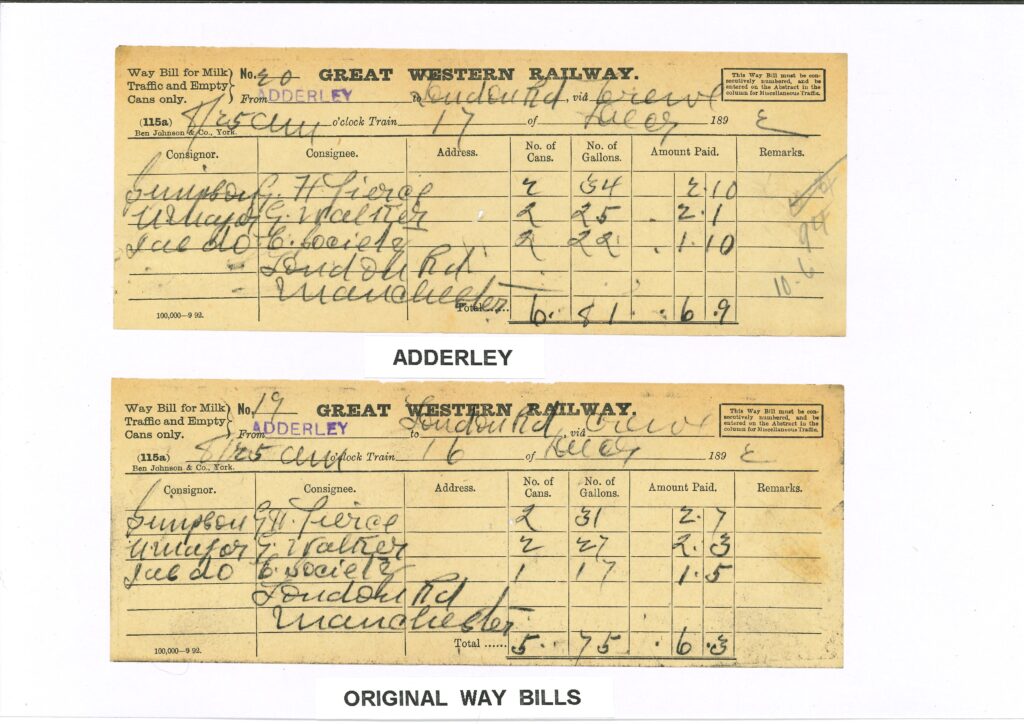 Way Bill for Milk Traffic and Empty Cans only.
No. 20 GREAT WESTERN RAILWAY.
This Way Bill must be consecutively numbered, and be entered on the Abstract in the column for Miscellaneous Traffic.
From ADDERLEY to London Rd, via Crewe
(115a) 8/25 am o'clock Train 17 of 189
Ben Johnson & Co., York.
Consignor. Consignee. Address. No. of Cans. No. of Gallons. Amount Paid. Remarks.
Simpson G. H Pierce 2 34 2.10
G. Walker 2 25 2.1
do C. Society 2 22 1.10
London Rd
Manchester
Total...... 6. 81 . 6.9
10.6
100,000—9 92.
ADDERLEY
Way Bill for Milk Traffic and Empty Cans only.
No. 19 GREAT WESTERN RAILWAY.
This Way Bill must be consecutively numbered, and be entered on the Abstract in the column for Miscellaneous Traffic.
From ADDERLEY to London Rd, via Crewe
(115a) 8/25 am o'clock Train 16 of 189
Ben Johnson & Co., York.
Consignor. Consignee. Address. No. of Cans. No. of Gallons. Amount Paid. Remarks.
Simpson G H. Pierce 2 31 2.7
G. Walker 2 27 2.3
do C. Society 1 17 1.5
London Rd
Manchester
Total ...... 5. 75 . 6.3
100,000—9 92.
ORIGINAL WAY BILLS